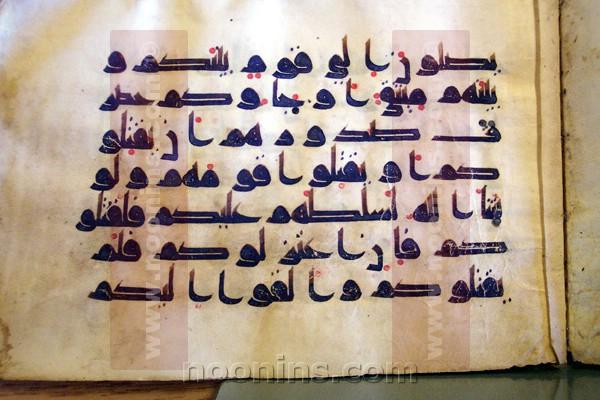 يصلون الى قوم بينكم و
بينهم ميثق او جاوكم حصر
ت صدورهم ان يقتلو
كم او يقتلوا قومهم ولو
شا الله لسلطهم عليكم فلقتلو
كم فان اعتزلوكم فلم
يقتلوكم والقوا اليكم
noonins.com